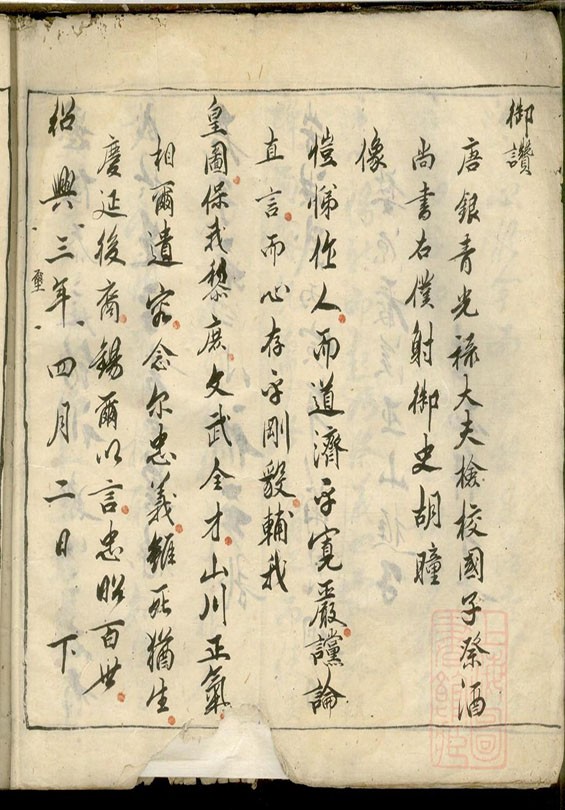 御讚
唐銀青光祿大夫檢校國子祭酒
尚書右僕射御史胡瞳
像
愷悌作人而道濟乎寬嚴讜論
直言而心存乎剛毅輔我
皇圖保我黎庶文武全才山川正氣
相爾遺容念尔忠義雖死猶生
慶延後裔錫爾以言忠昭百世
紹興三年四月二日下
璽